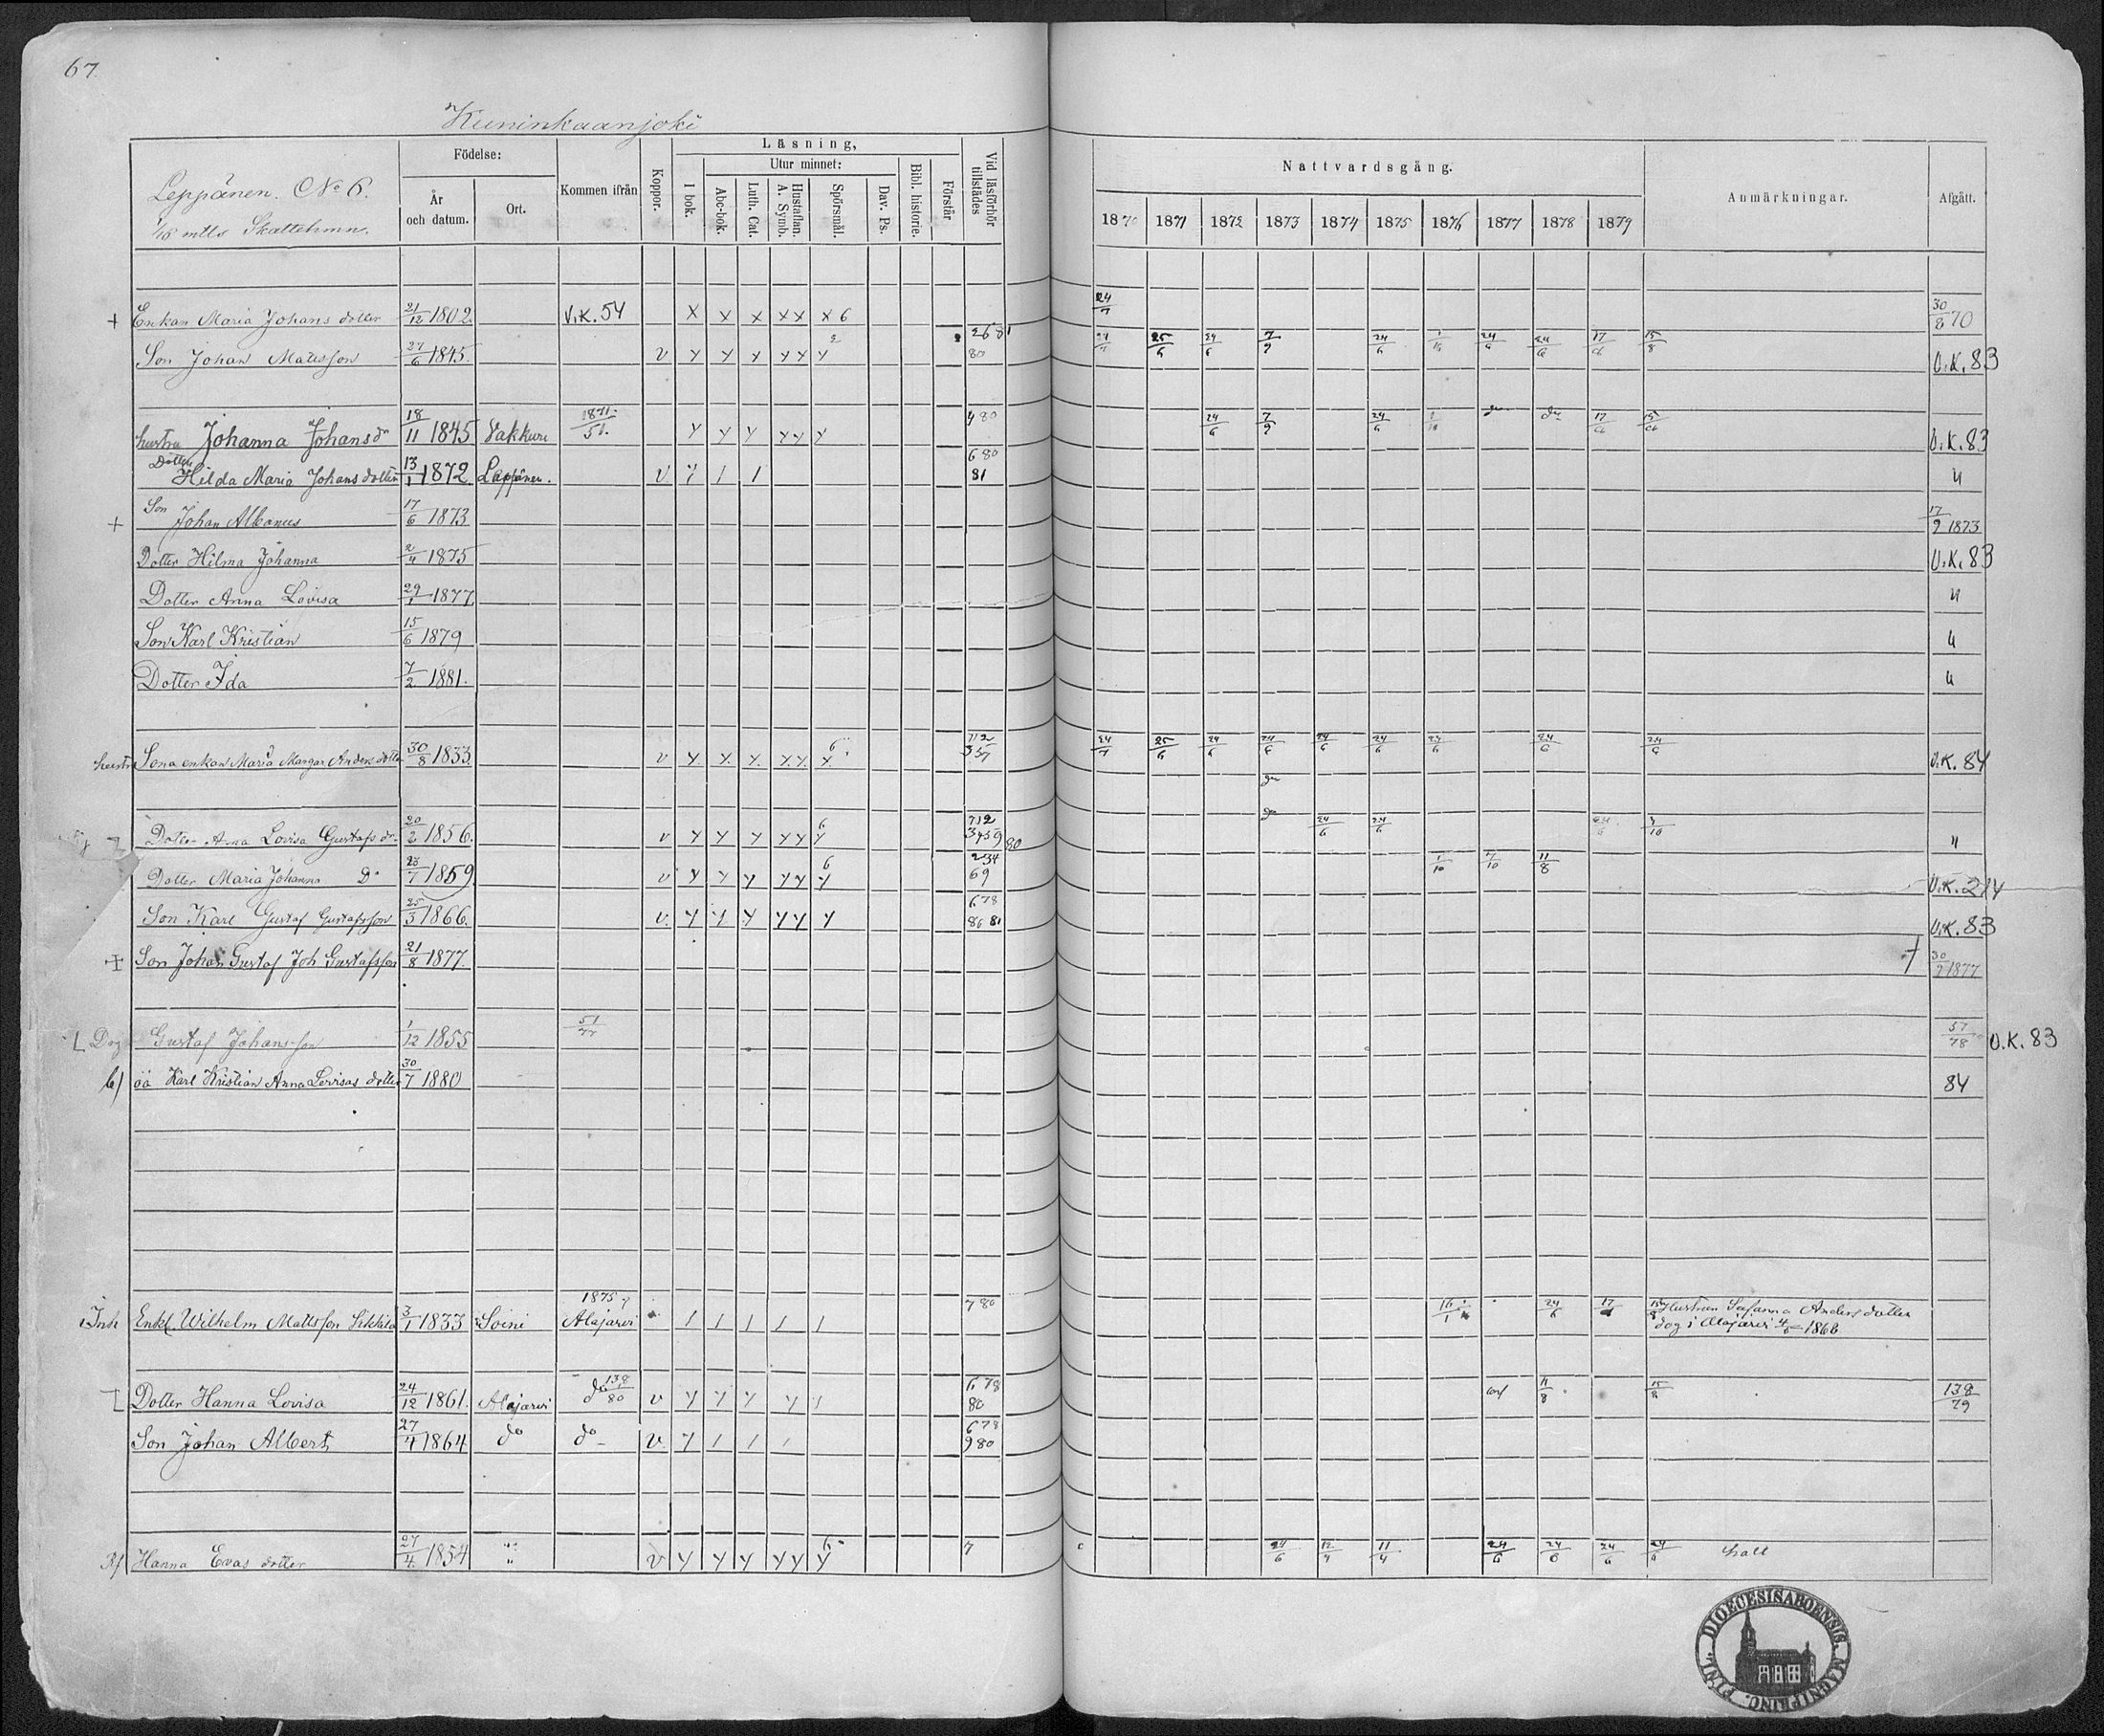 67
Kuninkaanjoki
Leppänen. No 6.
1/16 mtls Skattehmn.
Födelse:
År och datum.
Ort.
Kommen ifrån
Koppor.
Läsning,
I bok.
Utur minnet:
Abc-bok.
Luth. Cat.
Hustaflan. A. Symb.
Spörsmål.
Dav. Ps.
Bibl. historie.
Förstår
Vid läsförhör tillstädes
Nattvardsgång.
1870 1871 1872 1873 1874 1875 1876 1877 1878 1879
Anmärkningar.
Afgått.
+ Enkan Maria Johans dotter 21/12 1802. V.K. 54 x x x x x x 6 24/7 30/8 70
Son Johan Mattsson 27/6 1845. v y y x y y y 2681 80 24/7 25/6 24/6 7/9 24/6 24/6 24/6 17/6 15/8 U.K. 83
hustru Johanna Johansdr 18/11 1845 1871. 51. y y y y y y 480 24/6 7/9 24/6 17/6 U.K. 83
Dotter Hilda Maria Johansdotter 13/1 1872 Leppänen. v y / / 680 81 "
+ Son Johan Albanus 17/6 1873 17/9 1873
Dotter Hilma Johanna 2/4 1875 U.K. 83
Dotter Anna Lovisa 29/1 1877 "
Son Karl Kristian 15/6 1879 "
Dotter Ida 7/2 1881. "
hustru Sona enkan Maria Margar. Anders dotter 30/8 1833. v y y y y y y 6 712 357 24/7 25/6 24/6 24/6 24/6 24/6 24/6 24/6 24/6 U.K. 84
Dotter Anna Lovisa Gustafs dr. 20/2 1856. v y y y y y y 6 712 3459 80 24/6 24/6 "
Dotter Maria Johanna Do 23/7 1859 v y y y y y y 6 234 69 1/10 7/10 11/8 U.K. 214
Son Karl Gustaf Gustafsson 25/3 1866. v. y y y y y y 678 81 U.K. 83
+ Son Johan Gustaf Joh Gustafsson 21/8 1877. † 30/9 1877
Drg Gustaf Johansson 1/12 1855 51/77 57/78 U.K. 83
b) oä Karl Kristian Anna Lovisas dotter 30/7 1880 84
Inh Enkl. Wilhelm Mattsson Sikkilä 3/1 1833 Soini 1875 Alajärvi / / / / / 780 16/1 24/6 17 15/8 Hustrun Susanna Andersdotter
dog i Alajärvi 4/6 1868
Dotter Hanna Lovisa 24/12 1861. Alajärvi do 138/80 v y y y y / 678 80 11/8 15/8 138/79
Son Johan Albert 27/4 1864 do do v. y / / / 678 980
Hanna Evas dotter 27/4 1854 " v y y y y y y 6 7 24/6 11/4 24/6 24/6 24/6 24/6
DIOECESIS ABOENSIS. MAGNI PRINC. FINL.